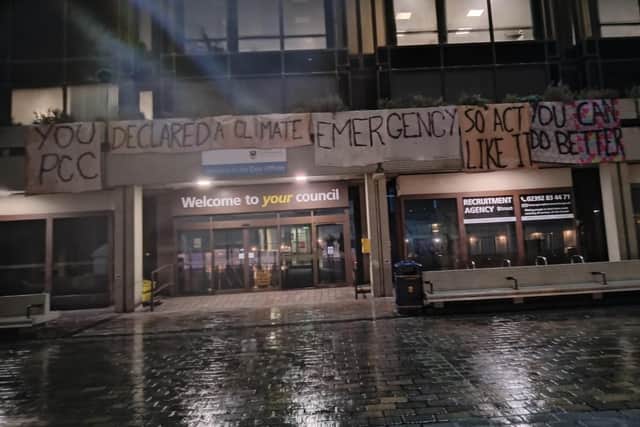 YOU
PCC
DECLARED A CLIMATE
EMERGENCY
SO ACT
LIKE IT
YOU CAN
DO BETTER
Welcome to your council
RECRUITMENT
AGENCY